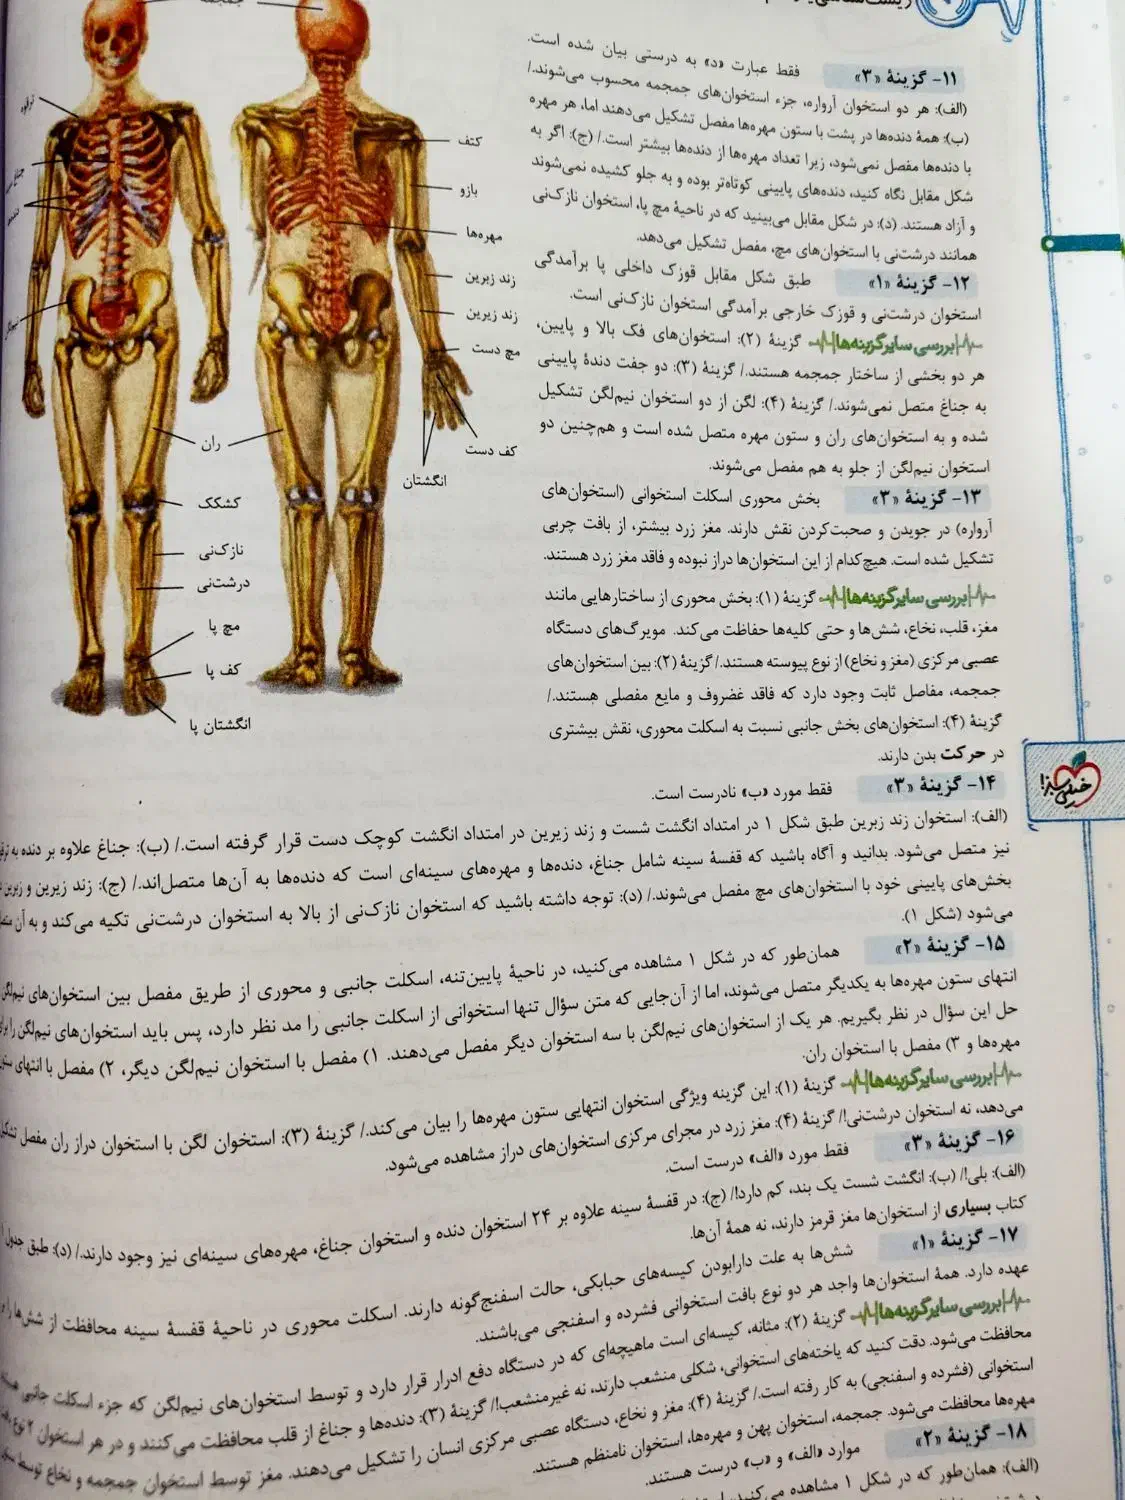 جمجمه
ترقوه
جناغ
دنده
نیم‌لگن
کتف
بازو
مهره‌ها
زند زیرین
زند زیرین
مچ دست
کف دست
انگشتان
ران
کشکک
نازک‌نی
درشت‌نی
مچ پا
کف پا
انگشتان پا
۱۱- گزینهٔ «۳» فقط عبارت «د» به درستی بیان شده است.
(الف): هر دو استخوان آرواره، جزء استخوان‌های جمجمه محسوب می‌شوند./
(ب): همهٔ دنده‌ها در پشت با ستون مهره‌ها مفصل تشکیل می‌دهند اما، هر مهره
با دنده‌ها مفصل نمی‌شود، زیرا تعداد مهره‌ها از دنده‌ها بیشتر است./ (ج): اگر به
شکل مقابل نگاه کنید، دنده‌های پایینی کوتاه‌تر بوده و به جلو کشیده نمی‌شوند
و آزاد هستند. (د): در شکل مقابل می‌بینید که در ناحیهٔ مچ پا، استخوان نازک‌نی
همانند درشت‌نی با استخوان‌های مچ، مفصل تشکیل می‌دهد.
۱۲- گزینهٔ «۱» طبق شکل مقابل قوزک داخلی پا برآمدگی
استخوان درشت‌نی و قوزک خارجی برآمدگی استخوان نازک‌نی است.
بررسی سایر گزینه‌ها گزینهٔ (۲): استخوان‌های فک بالا و پایین،
هر دو بخشی از ساختار جمجمه هستند./ گزینهٔ (۳): دو جفت دندهٔ پایینی
به جناغ متصل نمی‌شوند./ گزینهٔ (۴): لگن از دو استخوان نیم‌لگن تشکیل
شده و به استخوان‌های ران و ستون مهره متصل شده است و هم‌چنین دو
استخوان نیم‌لگن از جلو به هم مفصل می‌شوند.
۱۳- گزینهٔ «۳» بخش محوری اسکلت استخوانی (استخوان‌های
آرواره) در جویدن و صحبت‌کردن نقش دارند. مغز زرد بیشتر، از بافت چربی
تشکیل شده است. هیچ‌کدام از این استخوان‌ها دراز نبوده و فاقد مغز زرد هستند.
بررسی سایر گزینه‌ها گزینهٔ (۱): بخش محوری از ساختارهایی مانند
مغز، قلب، نخاع، شش‌ها و حتی کلیه‌ها حفاظت می‌کند. مویرگ‌های دستگاه
عصبی مرکزی (مغز و نخاع) از نوع پیوسته هستند./ گزینهٔ (۲): بین استخوان‌های
جمجمه، مفاصل ثابت وجود دارد که فاقد غضروف و مایع مفصلی هستند./
گزینهٔ (۴): استخوان‌های بخش جانبی نسبت به اسکلت محوری، نقش بیشتری
در حرکت بدن دارند.
خیلی سبز
۱۴- گزینهٔ «۳» فقط مورد «ب» نادرست است.
(الف): استخوان زند زیرین طبق شکل ۱ در امتداد انگشت شست و زند زیرین در امتداد انگشت کوچک دست قرار گرفته است./ (ب): جناغ علاوه بر دنده به
نیز متصل می‌شود. بدانید و آگاه باشید که قفسهٔ سینه شامل جناغ، دنده‌ها و مهره‌های سینه‌ای است که دنده‌ها به آن‌ها متصل‌اند./ (ج): زند زیرین و زبرین
بخش‌های پایینی خود با استخوان‌های مچ مفصل می‌شوند./ (د): توجه داشته باشید که استخوان نازک‌نی از بالا به استخوان درشت‌نی تکیه می‌کند و به آن
می‌شود (شکل ۱).
۱۵- گزینهٔ «۲» همان‌طور که در شکل ۱ مشاهده می‌کنید، در ناحیهٔ پایین‌تنه، اسکلت جانبی و محوری از طریق مفصل بین استخوان‌های نیم‌لگن
انتهای ستون مهره‌ها به یکدیگر متصل می‌شوند، اما از آن‌جایی که متن سؤال تنها استخوانی از اسکلت جانبی را مد نظر دارد، پس باید استخوان‌های نیم‌لگن را برای
حل این سؤال در نظر بگیریم. هر یک از استخوان‌های نیم‌لگن با سه استخوان دیگر مفصل می‌دهند. ۱) مفصل با استخوان نیم‌لگن دیگر، ۲) مفصل با انتهای ستون
مهره‌ها و ۳) مفصل با استخوان ران.
بررسی سایر گزینه‌ها گزینهٔ (۱): این گزینه ویژگی استخوان انتهایی ستون مهره‌ها را بیان می‌کند./ گزینهٔ (۳): استخوان لگن با استخوان دراز ران مفصل
می‌دهد، نه استخوان درشت‌نی!/ گزینهٔ (۴): مغز زرد در مجرای مرکزی استخوان‌های دراز مشاهده می‌شود.
۱۶- گزینهٔ «۳» فقط مورد «الف» درست است.
(الف): بلی!/ (ب): انگشت شست یک بند، کم دارد!/ (ج): در قفسهٔ سینه علاوه بر ۲۴ استخوان دنده و استخوان جناغ، مهره‌های سینه‌ای نیز وجود دارند./ (د): طبق جدول
کتاب بسیاری از استخوان‌ها مغز قرمز دارند، نه همهٔ آن‌ها.
۱۷- گزینهٔ «۱» شش‌ها به علت دارابودن کیسه‌های حبابکی، حالت اسفنج‌گونه دارند. اسکلت محوری در ناحیهٔ قفسهٔ سینه محافظت از شش‌ها را
عهده دارد. همهٔ استخوان‌ها واجد هر دو نوع بافت استخوانی فشرده و اسفنجی می‌باشند.
بررسی سایر گزینه‌ها گزینهٔ (۲): مثانه، کیسه‌ای است ماهیچه‌ای که در دستگاه دفع ادرار قرار دارد و توسط استخوان‌های نیم‌لگن که جزء اسکلت جانبی
محافظت می‌شود. دقت کنید که یاخته‌های استخوانی، شکلی منشعب دارند، نه غیرمنشعب!/ گزینهٔ (۳): دنده‌ها و جناغ از قلب محافظت می‌کنند و در هر استخوان ۲ نوع
استخوانی (فشرده و اسفنجی) به کار رفته است./ گزینهٔ (۴): مغز و نخاع، دستگاه عصبی مرکزی انسان را تشکیل می‌دهند. مغز توسط استخوان جمجمه و نخاع توسط
مهره‌ها محافظت می‌شود. جمجمه، استخوان پهن و مهره‌ها، استخوان نامنظم هستند.
۱۸- گزینهٔ «۲» موارد «الف» و «ب» درست هستند.
(الف): همان‌طور که در شکل ۱ مشاهده می‌کنید،